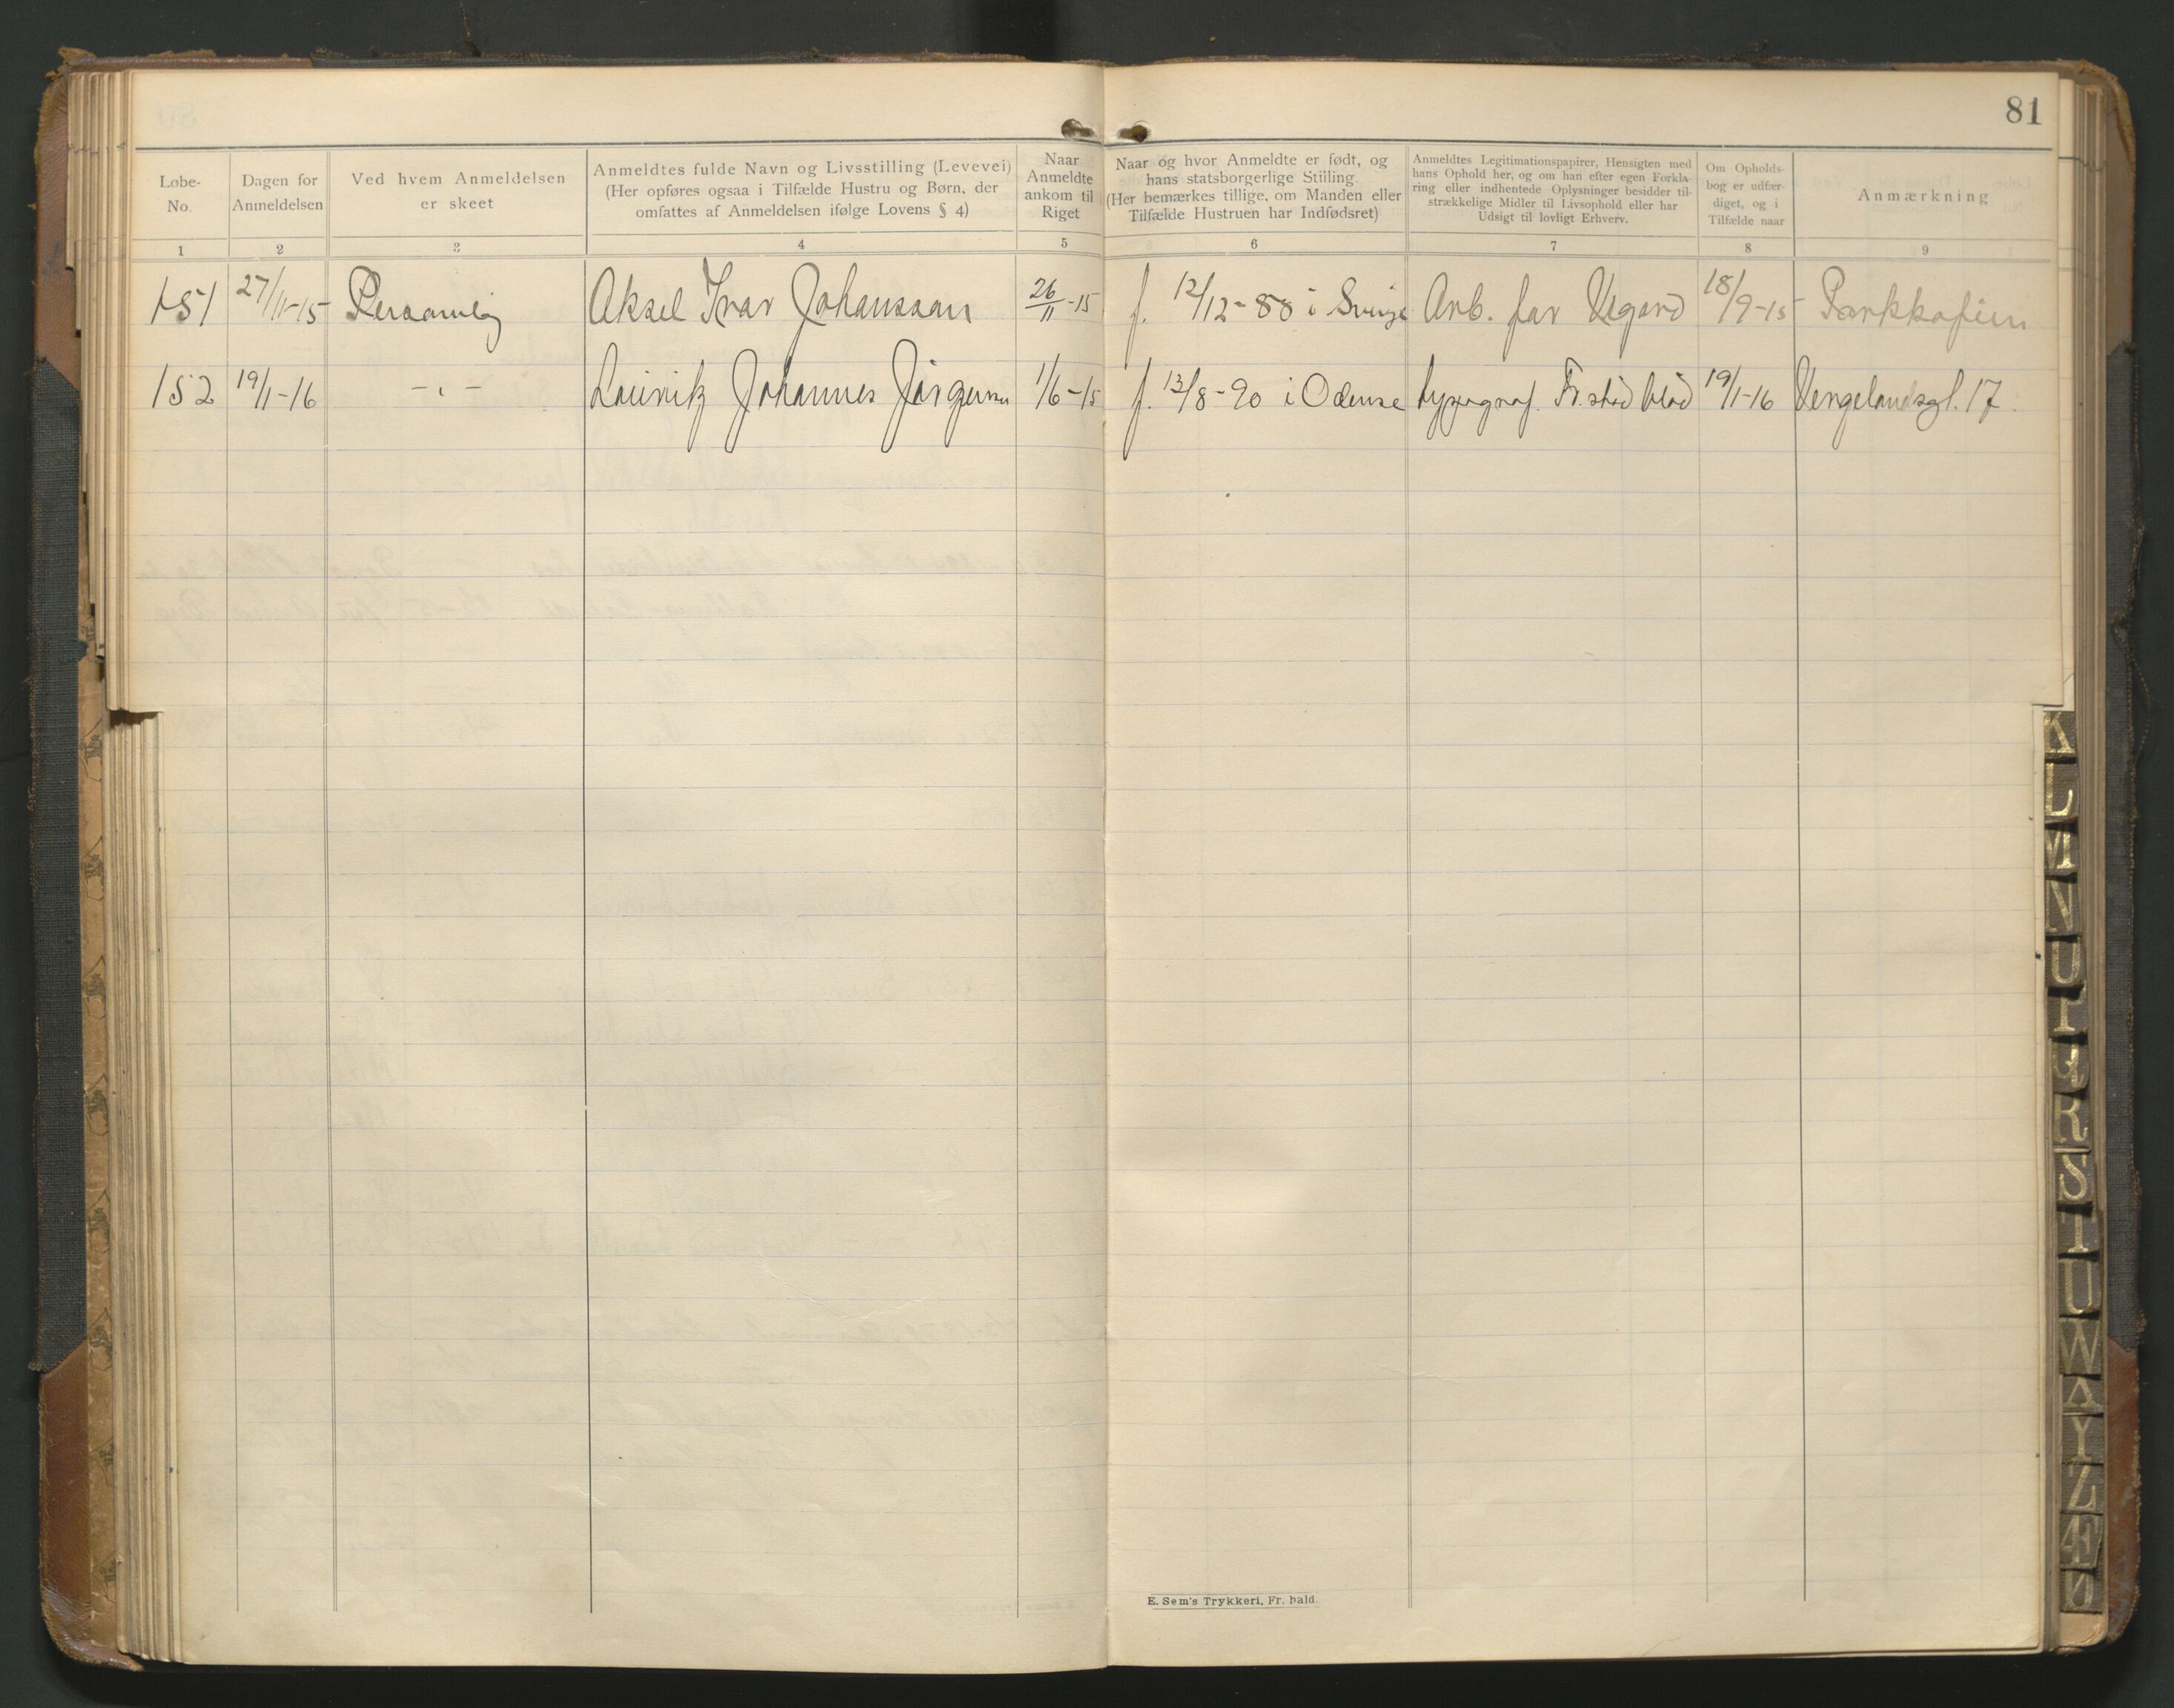 81
Løbe-
No.
Dagen for
Anmeldelsen
Ved hvem Anmeldelsen
er skeet
Anmeldtes fulde Navn og Livsstilling (Levevei)
(Her opføres ogsaa i Tilfælde Hustru og Børn, der
omfattes af Anmeldelsen ifølge Lovens § 4)
Naar
Anmeldte
ankom til
Riget
Naar og hvor Anmeldte er født, og
hans statsborgerlige Stilling
(Her bemærkes tillige, om Manden eller
Tilfælde Hustruen har Indfødsret)
Anmeldtes Legitimationspapirer, Hensigten med
hans Ophold her, og om han efter egen Forkla-
ring eller indhentede Oplysninger besidder til-
strækkelige Midler til Livsophold eller har
Udsigt til lovligt Erhverv.
Om Opholds-
bog er udfær-
diget, og i
Tilfælde naar
Anmærkning
1 2 3 4 5 6 7 8 9
151 27/11-15 Personlig Aksel Ivar Johansson 26/11-15 f. 12/12-88 i Sverige Arb. for 18/9-15
152 19/1-16 -"- Johannes Jørgensen 1/6-15 f. 13/8-90 i Odense typograf Fr.stad blad 19/1-16 Vergelandsgt. 17.
E. Sem's Trykkeri, Fr. hald.
K
L
M
N
O
P
Q
R
S
T
U
W
X
Y
Z
Æ
Ø